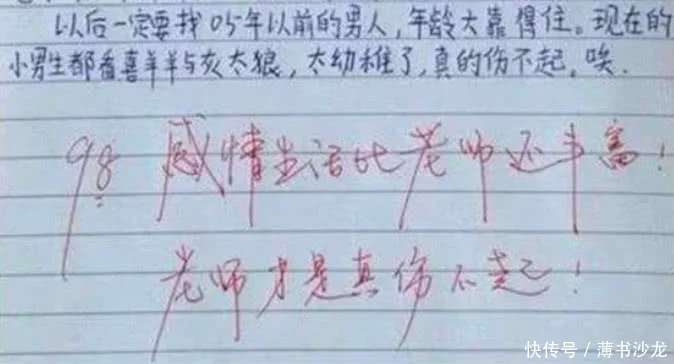 以后一定要找05年以前的男人,年龄大靠得住。现在的
小男生都看喜羊羊与灰太狼,太幼稚了,真的伤不起。唉.
98 感情生活比老师还丰富!
老师才是真伤不起!
快传号/薄书沙龙